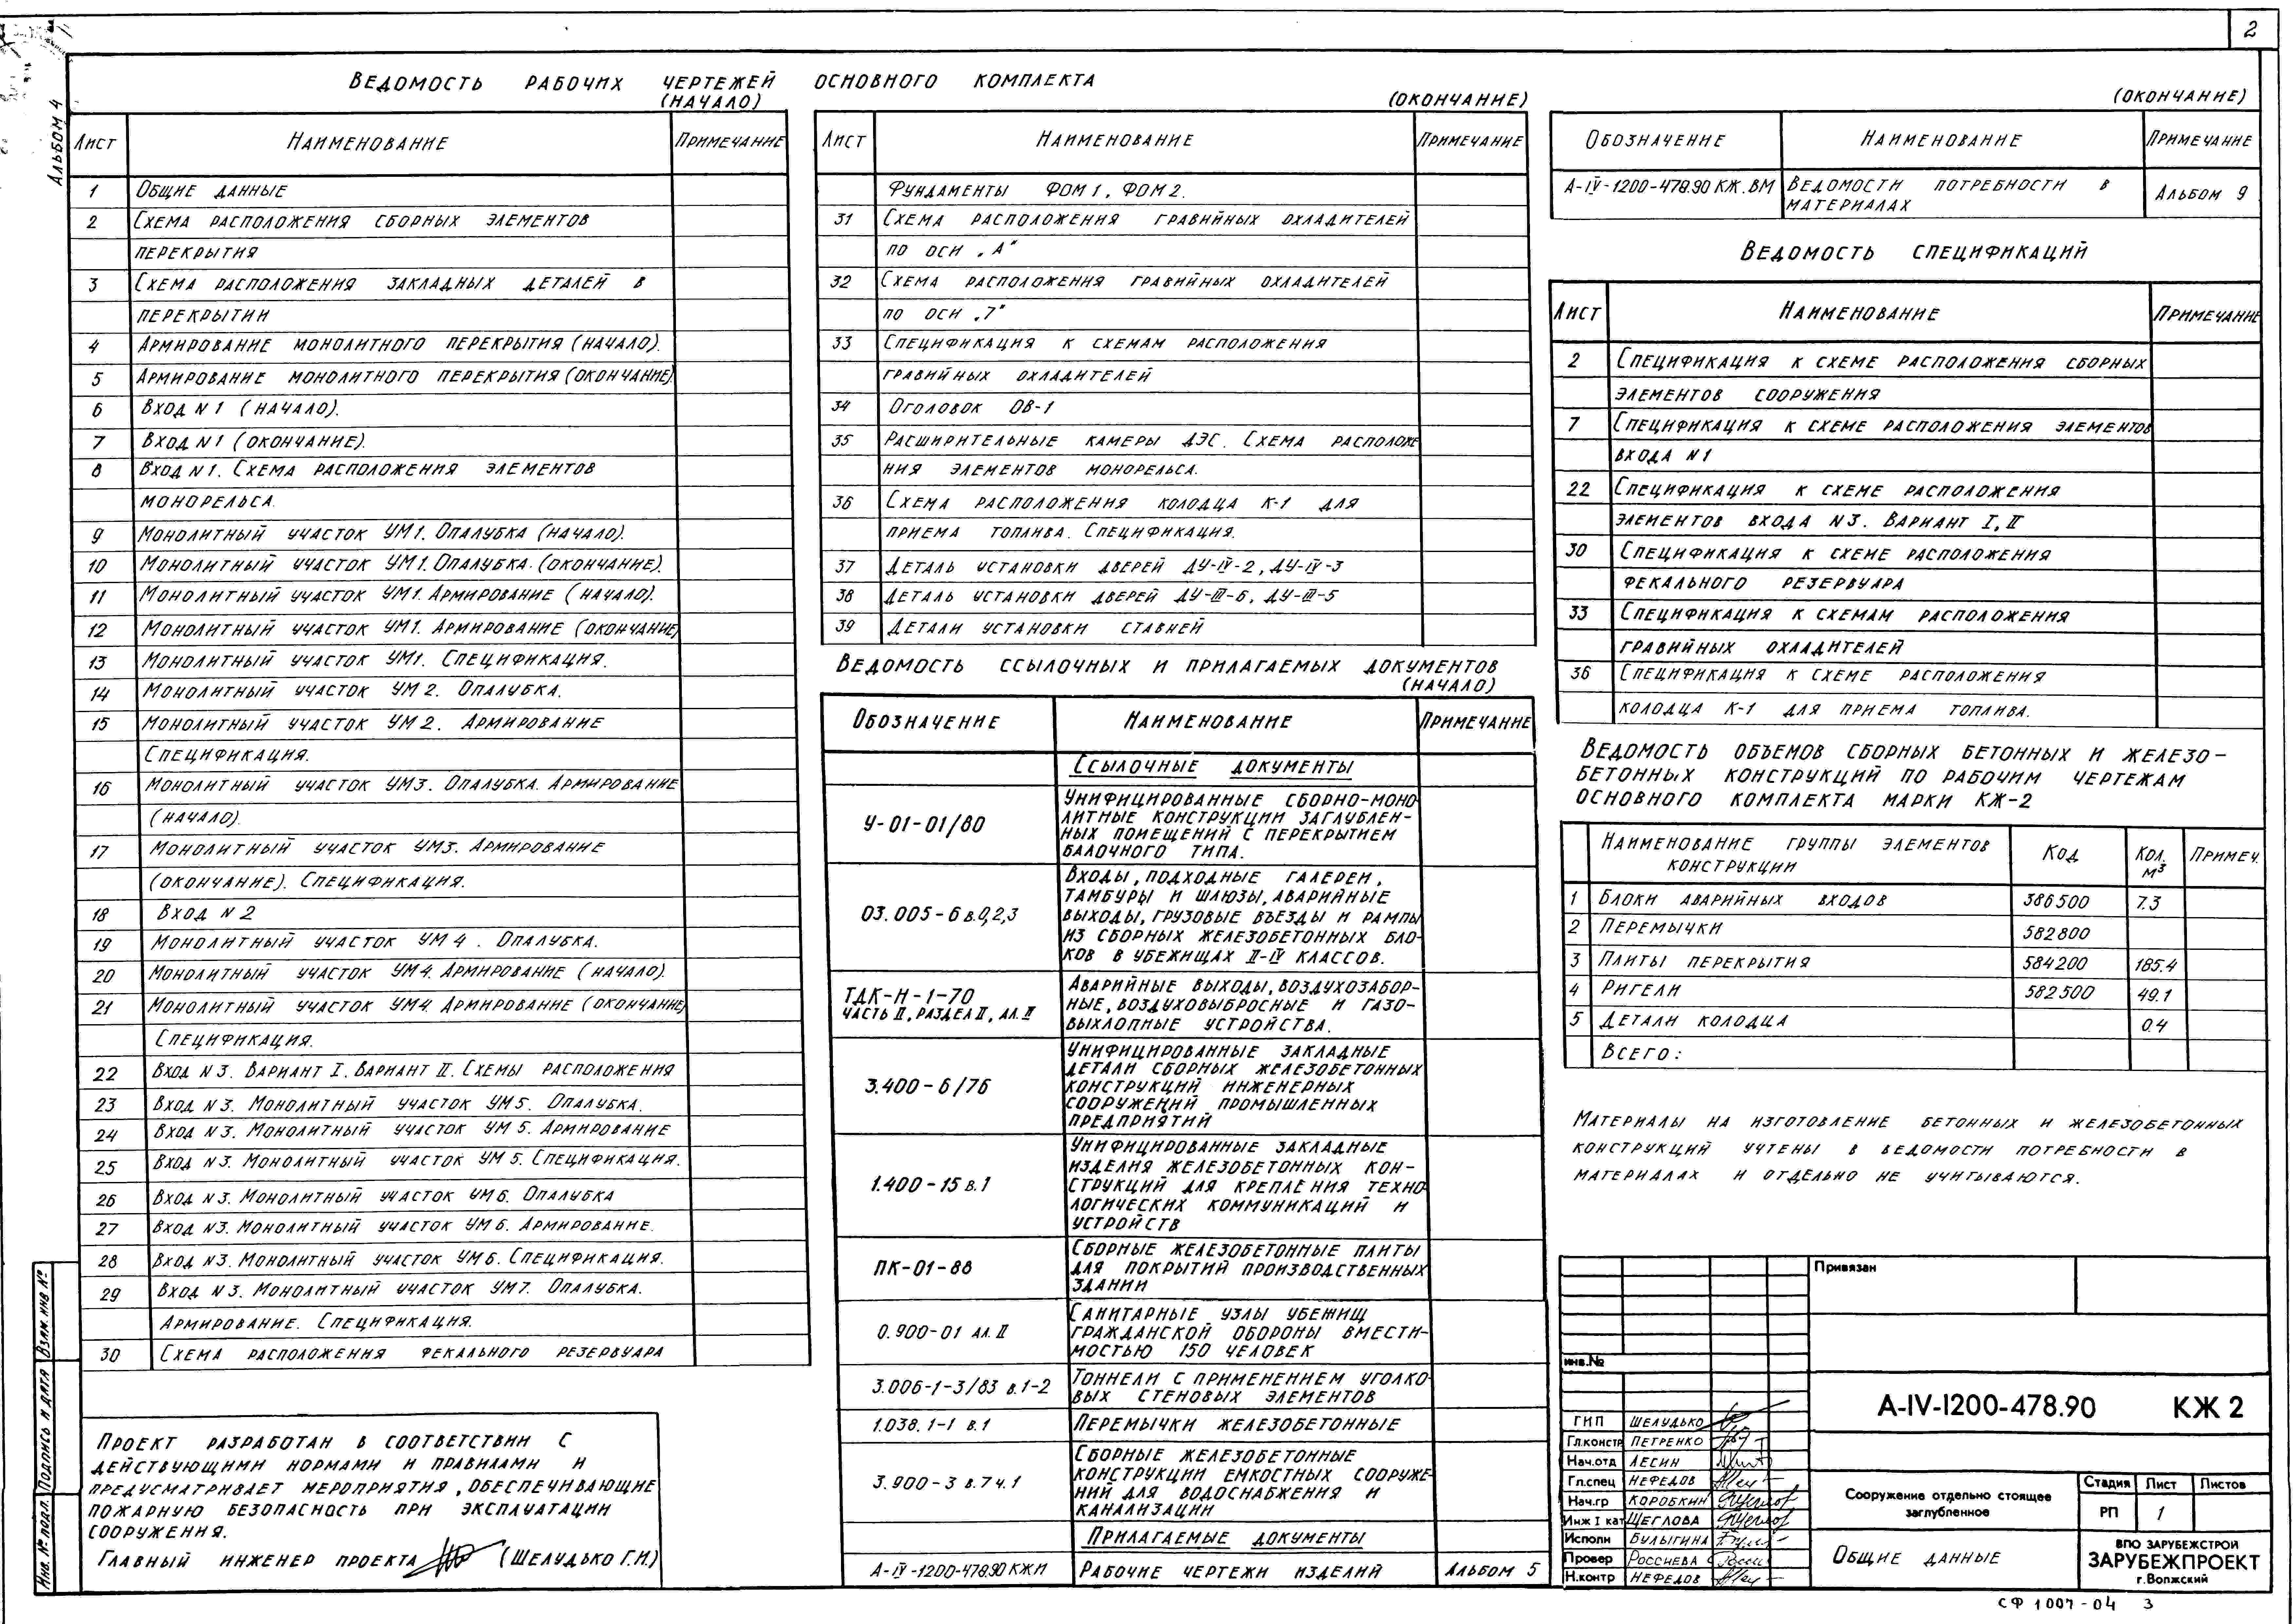 2
Альбом 4
Ведомость рабочих чертежей основного комплекта
(начало)
Лист Наименование Примечание
1 Общие данные
2 Схема расположения сборных элементов
перекрытия
3 Схема расположения закладных деталей в
перекрытии
4 Армирование монолитного перекрытия (начало).
5 Армирование монолитного перекрытия (окончание).
6 Вход N1 (начало).
7 Вход N1 (окончание).
8 Вход N1. Схема расположения элементов
монорельса.
9 Монолитный участок УМ1. Опалубка (начало).
10 Монолитный участок УМ1. Опалубка. (окончание).
11 Монолитный участок УМ1. Армирование (начало).
12 Монолитный участок УМ1. Армирование (окончание)
13 Монолитный участок УМ1. Спецификация.
14 Монолитный участок УМ2. Опалубка.
15 Монолитный участок УМ2. Армирование
Спецификация.
16 Монолитный участок УМ3. Опалубка. Армирование
(начало).
17 Монолитный участок УМ3. Армирование
(окончание). Спецификация.
18 Вход N2
19 Монолитный участок УМ4. Опалубка.
20 Монолитный участок УМ4. Армирование (начало)
21 Монолитный участок УМ4. Армирование (окончание)
Спецификация.
22 Вход N3. Вариант I. Вариант II. Схемы расположения
23 Вход N3. Монолитный участок УМ5. Опалубка.
24 Вход N3. Монолитный участок УМ5. Армирование
25 Вход N3. Монолитный участок УМ5. Спецификация.
26 Вход N3. Монолитный участок УМ6. Опалубка
27 Вход N3. Монолитный участок УМ6. Армирование.
28 Вход N3. Монолитный участок УМ6. Спецификация.
29 Вход N3. Монолитный участок УМ7. Опалубка.
Армирование. Спецификация.
30 Схема расположения фекального резервуара
Проект разработан в соответствии с
действующими нормами и правилами и
предусматривает мероприятия, обеспечивающие
пожарную безопасность при эксплуатации
сооружения.
Главный инженер проекта (Шелудько Г.И.)
Инв. № подл. Подпись и дата Взам. инв №
(окончание)
Лист Наименование Примечание
Фундаменты ФОМ1, ФОМ2.
31 Схема расположения гравийных охладителей
по оси „А"
32 Схема расположения гравийных охладителей
по оси „7"
33 Спецификация к схемам расположения
гравийных охладителей
34 Оголовок ОВ-1
35 Расширительные камеры ДЭС. Схема расположе
ния элементов монорельса.
36 Схема расположения колодца К-1 для
приема топлива. Спецификация.
37 Деталь установки дверей ДУ-IV-2, ДУ-IV-3
38 Деталь установки дверей ДУ-III-6, ДУ-III-5
39 Детали установки ставней
Ведомость ссылочных и прилагаемых документов
(начало)
Обозначение Наименование Примечание
Ссылочные документы
У-01-01/80 Унифицированные сборно-моно
литные конструкции заглублен-
ных помещений с перекрытием
балочного типа.
03.005-6 в.0,2,3 Входы, подходные галереи,
тамбуры и шлюзы, аварийные
выходы, грузовые въезды и рампы
из сборных железобетонных бло-
ков в убежищах II-IV классов.
ТДК-Н-1-70
часть II, раздел II, ал. II
Аварийные выходы, воздухозабор-
ные, воздуховыбросные и газо-
выхлопные устройства.
3.400-6/76 Унифицированные закладные
детали сборных железобетонных
конструкций инженерных
сооружений промышленных
предприятий
1.400-15 в.1 Унифицированные закладные
изделия железобетонных кон-
струкций для крепления техно
логических коммуникаций и
устройств
ПК-01-88 Сборные железобетонные плиты
для покрытий производственных
зданий
0.900-01 ал. II Санитарные узлы убежищ
гражданской обороны вмести-
мостью 150 человек
3.006-1-3/83 в.1-2 Тоннели с применением уголко
вых стеновых элементов
1.038.1-1 в.1 Перемычки железобетонные
3.900-3 в.7 ч.1 Сборные железобетонные
конструкции емкостных сооруже
ний для водоснабжения и
канализации
Прилагаемые документы
А-IV-1200-478.90 КЖИ Рабочие чертежи изделий Альбом 5
(окончание)
Обозначение Наименование Примечание
А-IV-1200-478.90 КЖ.ВМ Ведомости потребности в
материалах Альбом 9
Ведомость спецификаций
Лист Наименование Примечание
2 Спецификация к схеме расположения сборных
элементов сооружения
7 Спецификация к схеме расположения элементов
входа N1
22 Спецификация к схеме расположения
элементов входа N3. Вариант I, II
30 Спецификация к схеме расположения
фекального резервуара
33 Спецификация к схемам расположения
гравийных охладителей
36 Спецификация к схеме расположения
колодца К-1 для приема топлива.
Ведомость объемов сборных бетонных и железо-
бетонных конструкций по рабочим чертежам
основного комплекта марки КЖ-2
Наименование группы элементов
конструкции Код Кол. м³ Примеч.
1 Блоки аварийных входов 386500 7.3
2 Перемычки 582800
3 Плиты перекрытия 584200 185.4
4 Ригели 582500 49.1
5 Детали колодца 0.4
Всего:
Материалы на изготовление бетонных и железобетонных
конструкций учтены в ведомости потребности в
материалах и отдельно не учитываются.
Привязан
инв.№
А-IV-1200-478.90 КЖ 2
ГИП Шелудько
Гл.констр Петренко
Нач.отд Лесин
Гл.спец Нефедов
Нач.гр Коробкин
Инж I кат Щеглова
Исполн Булыгина
Провер Россиева
Н.контр Нефедов
Сооружение отдельно стоящее
заглубленное
Стадия Лист Листов
РП 1
Общие данные
ВПО ЗАРУБЕЖСТРОЙ
ЗАРУБЕЖПРОЕКТ
г.Волжский
СФ 1007-04 3